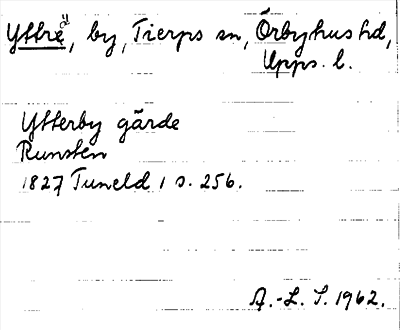 Yttre, by, Tierps sn, Örbyhus hd,
Upps. l.
Ytterby gärde
Runsten
1827 Tuneld 1 s. 256.
A.-L. S. 1962.